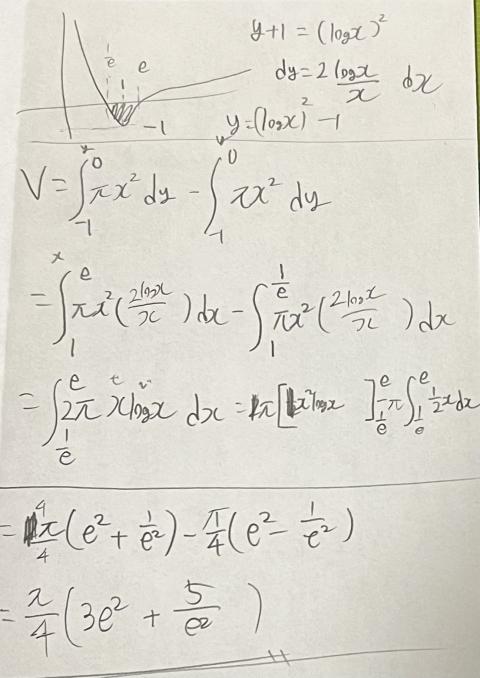 1/e
1
e
-1
y+1 = (logx)²
dy = 2 logx/x dx
y = (logx)² - 1
V = ∫_{-1}^{0} πx² dy - ∫_{-1}^{0} πx² dy
= ∫_{1}^{e} πx² (2logx/x) dx - ∫_{1}^{1/e} πx² (2logx/x) dx
= ∫_{1/e}^{e} 2π x logx dx = π[x²logx]_{1/e}^{e} - π∫_{1/e}^{e} 1/2 x dx
= 4π/4 (e² + 1/e²) - π/4 (e² - 1/e²)
= π/4 (3e² + 5/e²)